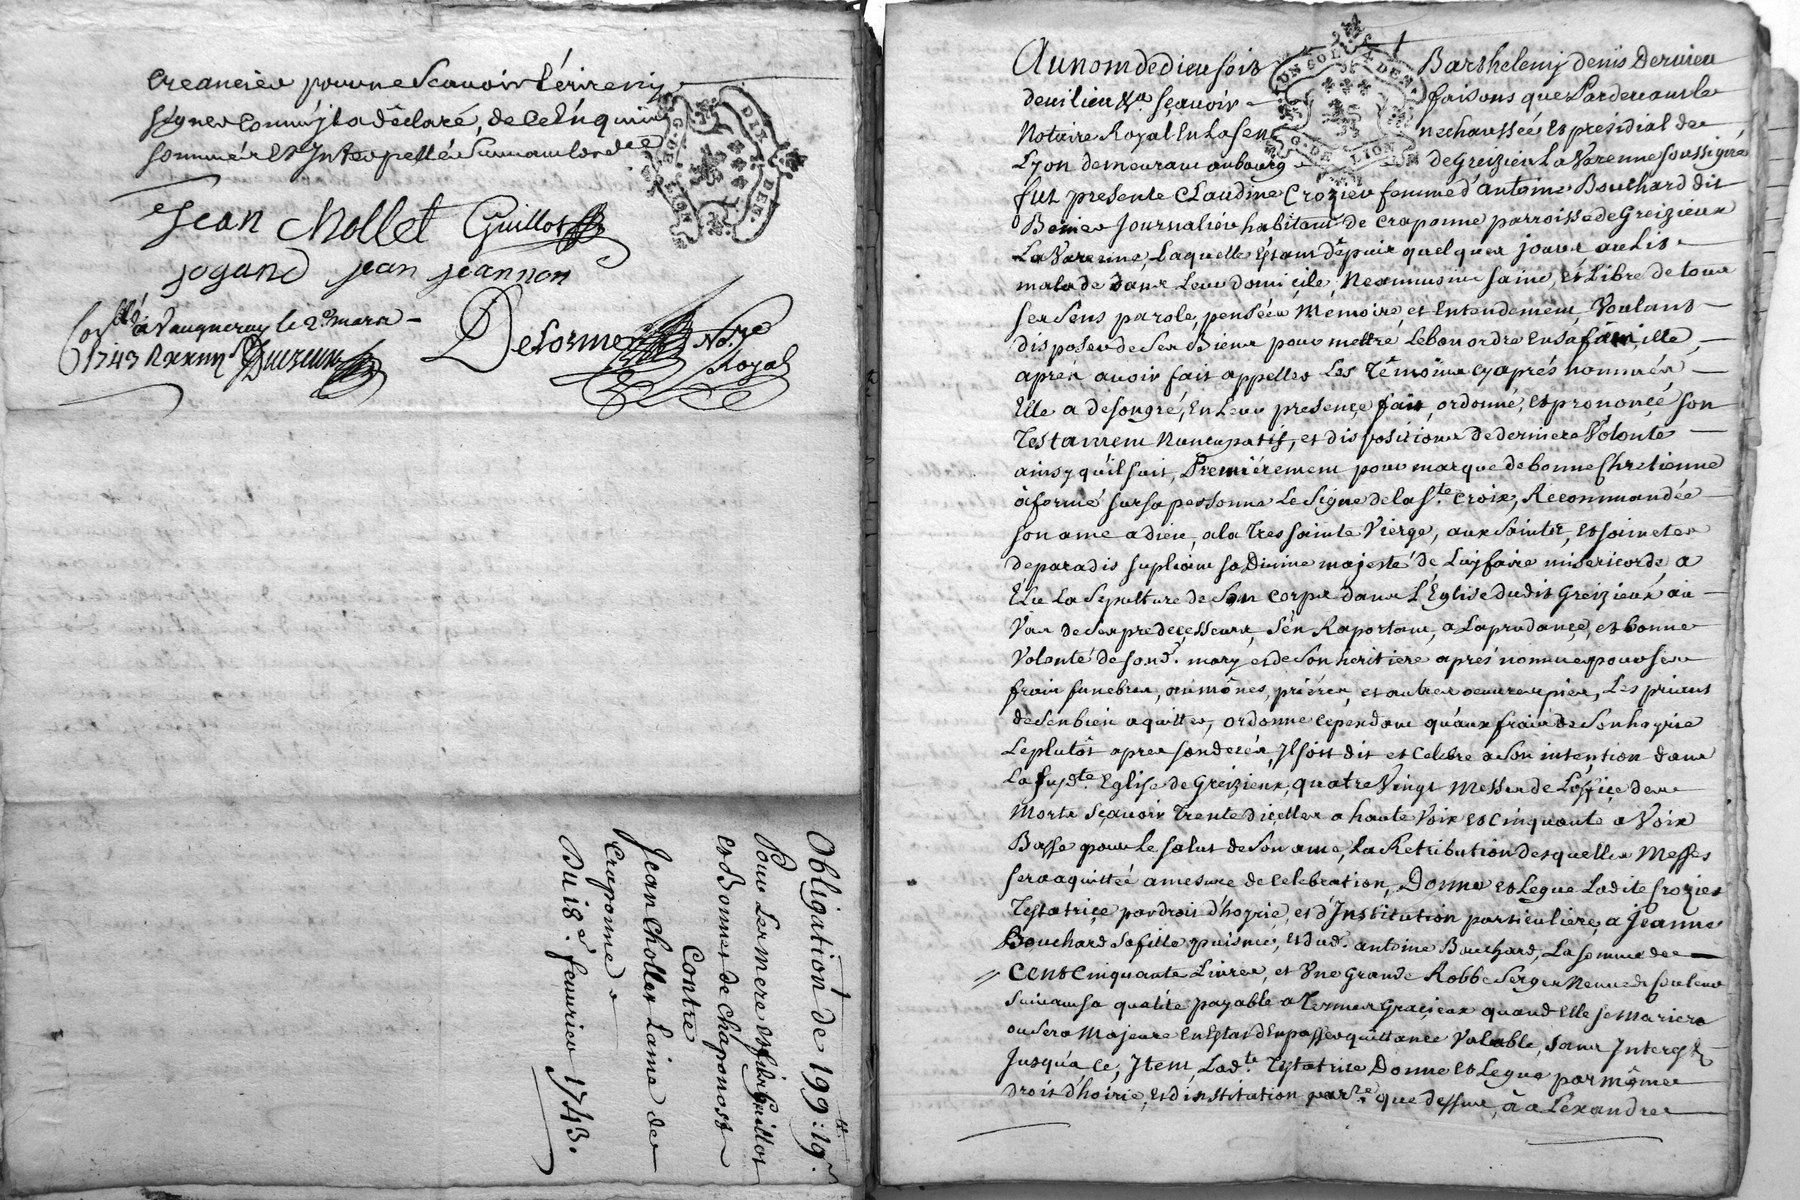 creancier pour ne scavoir l'écrire ny
signer comm'jl a déclaré, de ce Enquis
sommés et Interpellés suivant lord.ce
G. DE LION DIX DEN.
Jean Chollet Guillot
jogand jean jeannon
Con.llé à Vaugneray le 2e mars
1743 Delorme No.re
Royal
Obligation de 199: 19.
Pour Les mere et fils Guillot
et Bonnet de Chaponost
Contre
Jean Chollet Laine de
Craponne
Du 18e. feuvrier 1743.
Au nom de dieu soit Barthelemy denis Dervieu
de vilieu &a sçavoir faisons que Pardevant le
UN SOL 4 DEN. G. DE LION
Notaire Royal En La Senechaussée et presidial de
Lyon demeurant au bourg de Greizieu La Varenne soussigné
fut presente Claudine Crozier femme d'antoine Bouchard dit
journalier habitant de Craponne parroisse de Greizieux
La Varenne, Laquelle Estant depuis quelques jours au Lit
malade dans Leur domicile, Neanmoins saine, et Libre de tous
ses sens parole, pensées, Memoire, et Entendement, Voulant
disposer de ses Biens pour mettre Le bon ordre En sa famille,
aprés avoir fait appeller Les Témoins cy aprés nommés
Elle a de son gré, En Leur presence fait, ordonné, et prononcé son
Testament Nuncupatif, et dispositions de derniere Volonté
ainsy qu'il suit, Premiérement pour marque de bonne Chretienne
à formé sur sa personne Le Signe de la S.te Croix, Recommandée
son ame a dieu, a la Tres sainte Vierge, aux Saints, et saintes
de paradis supliant sa Divine majesté de Luy faire misericorde, a
Elu La Sepulture de Son Corps dans L'Eglise dudit Greizieux au
Vas de ses predecesseurs, s'en Raportant, a La prudance, et bonne
Volonté de son d. mary et de son heritiere aprés nommés pour ses
frais funebres, aumônes, priéres, et autres oeuvres pies, Les priant
de s'en bien aquitter, ordonne cependant qu'aux frais de Son hoyrie
Le plutôt apres son decés, Jl soit dit et Celebré a Son intention dans
La susd.te Eglise de Greizieux, quatre Vingt Messes de L'office des
Morts sçavoir Trente d'icelles a haute Voix et Cinquante a Voix
Basse pour Le salut de Son ame, La Retribution desquelles Messes
sera aquittée a mesure de Celebration, Donne et Legue Ladite Crozier
Testatrice par droit d'hoyrie, et d'Institution particuliere a Jeanne
Bouchard Sa fille puisnée, et dud. antoine Bouchard, La somme de
Cent Cinquante Livres, et Une Grande Robbe Serge Neuve de Couleur
suivant sa qualité payable a Termes Gracieux quand Elle se Mariera
ou sera Majeure En Estat d'En passer quittance Valable, sans Interest
Jusqu'a ce, Item, Lad.te Testatrice Donne et Legue par même
Droit d'hoirie, et d'institution que dessus, à alexandre